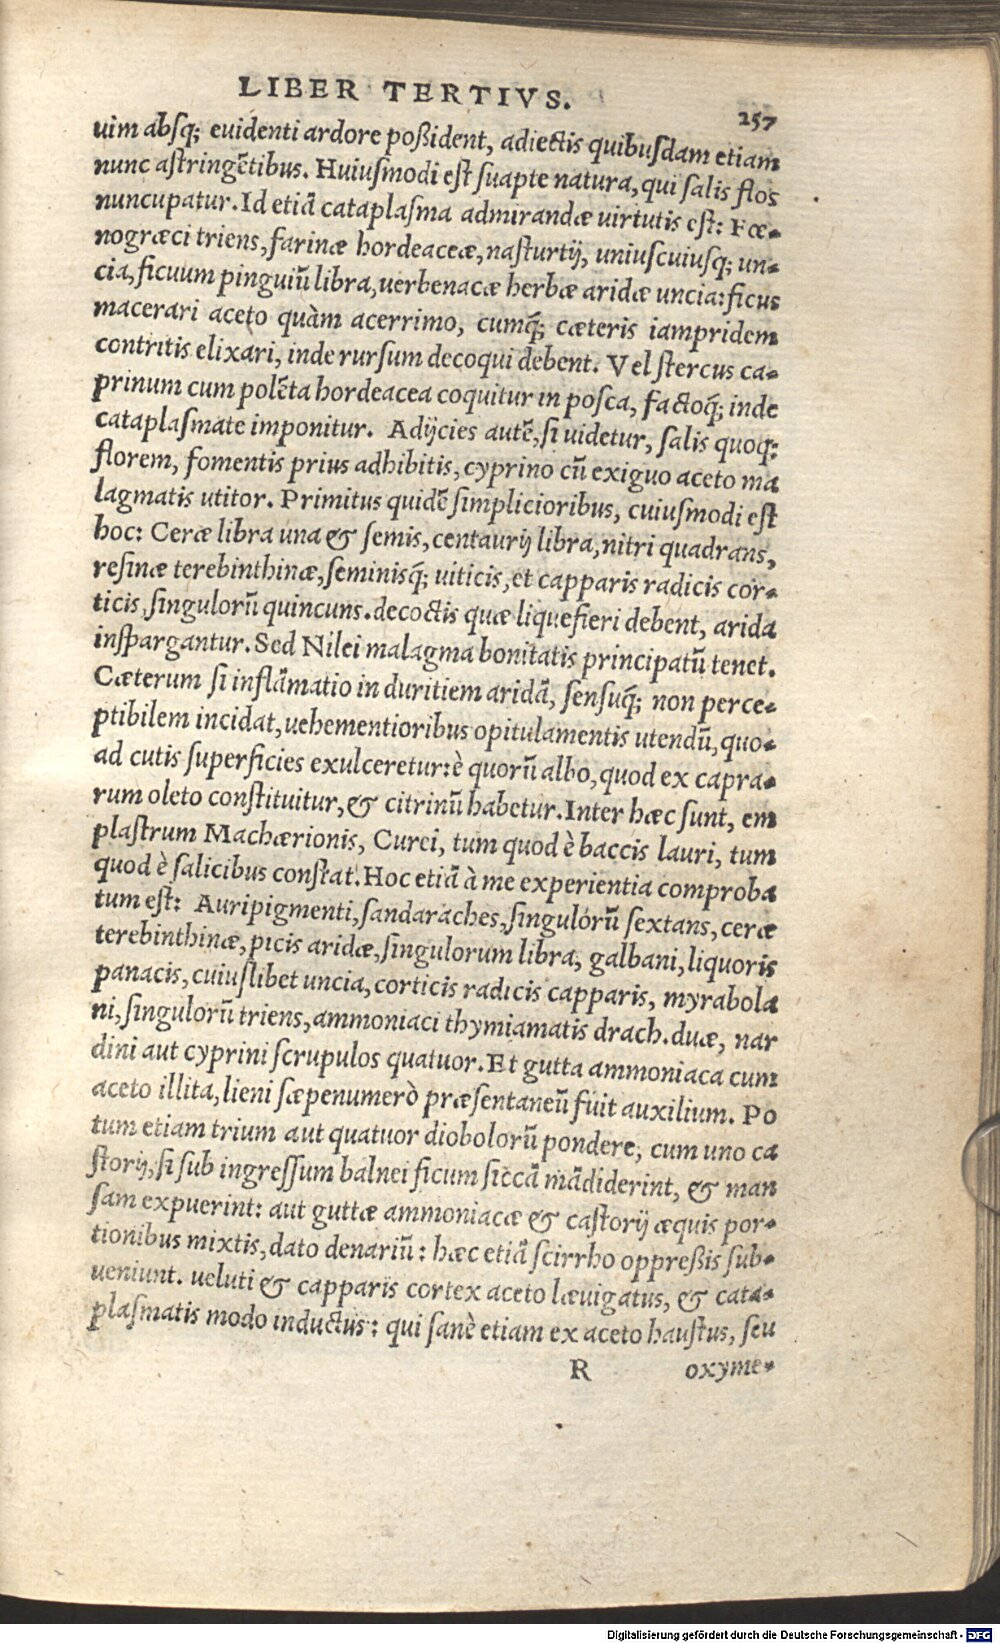 LIBER TERTIVS.
257
uim absq; euidenti ardore poßident, adiectis quibusdam etiam
nunc astringẽtibus. Huiusmodi est suapte natura, qui salis flos
nuncupatur. Id etiã cataplasma admirandæ uirtutis est: Fœ-
nogræci triens, farinæ hordeaceæ, nasturtij, uniuscuiusq; un-
cia, ficuum pinguiũ libra, uerbenacæ herbæ aridæ uncia: ficus
macerari aceto quàm acerrimo, cumq́; cæteris iampridem
contritis elixari, inde rursum decoqui debent. Vel stercus ca-
prinum cum polẽta hordeacea coquitur in posca, factoq́; inde
cataplasmate imponitur. Adijcies autẽ, si uidetur, salis quoq;
florem, fomentis prius adhibitis, cyprino cũ exiguo aceto ma
lagmatis utitor. Primitus quidẽ simplicioribus, cuiusmodi est
hoc: Ceræ libra una & semis, centaurij libra, nitri quadrans,
resinæ terebinthinæ, seminisq́; uiticis, et capparis radicis cor-
ticis, singulorũ quincuns. decoctis quæ liquefieri debent, arida
inspargantur. Sed Nilei malagma bonitatis principatũ tenet.
Cæterum si inflãmatio in duritiem aridã, sensuq́; non perce-
ptibilem incidat, uehementioribus opitulamentis utendũ, quo-
ad cutis superficies exulceretur: è quorũ albo, quod ex capra-
rum oleto constituitur, & citrinũ habetur. Inter hæc sunt, em
plastrum Machærionis, Curei, tum quod è baccis lauri, tum
quod è salicibus constat. Hoc etiã à me experientia comproba
tum est: Auripigmenti, sandaraches, singulorũ sextans, ceræ
terebinthinæ, picis aridæ, singulorum libra, galbani, liquoris
panacis, cuiuslibet uncia, corticis radicis capparis, myrabola
ni, singulorũ triens, ammoniaci thymiamatis drach. duæ, nar
dini aut cyprini scrupulos quatuor. Et gutta ammoniaca cum
aceto illita, lieni sæpenumerò præsentaneũ fuit auxilium. Po
tum etiam trium aut quatuor diobolorũ pondere, cum uno ca
storij, si sub ingressum balnei ficum siccã mãdiderint, & man
sam expuerint: aut guttæ ammoniacæ & castorij æquis por-
tionibus mixtis, dato denariũ: hæc etiã scirrho oppreßis sub-
ueniunt. ueluti & capparis cortex aceto læuigatus, & cata-
plasmatis modo inductus: qui sanè etiam ex aceto haustus, seu
R oxyme-
Digitalisierung gefördert durch die Deutsche Forschungsgemeinschaft - DFG